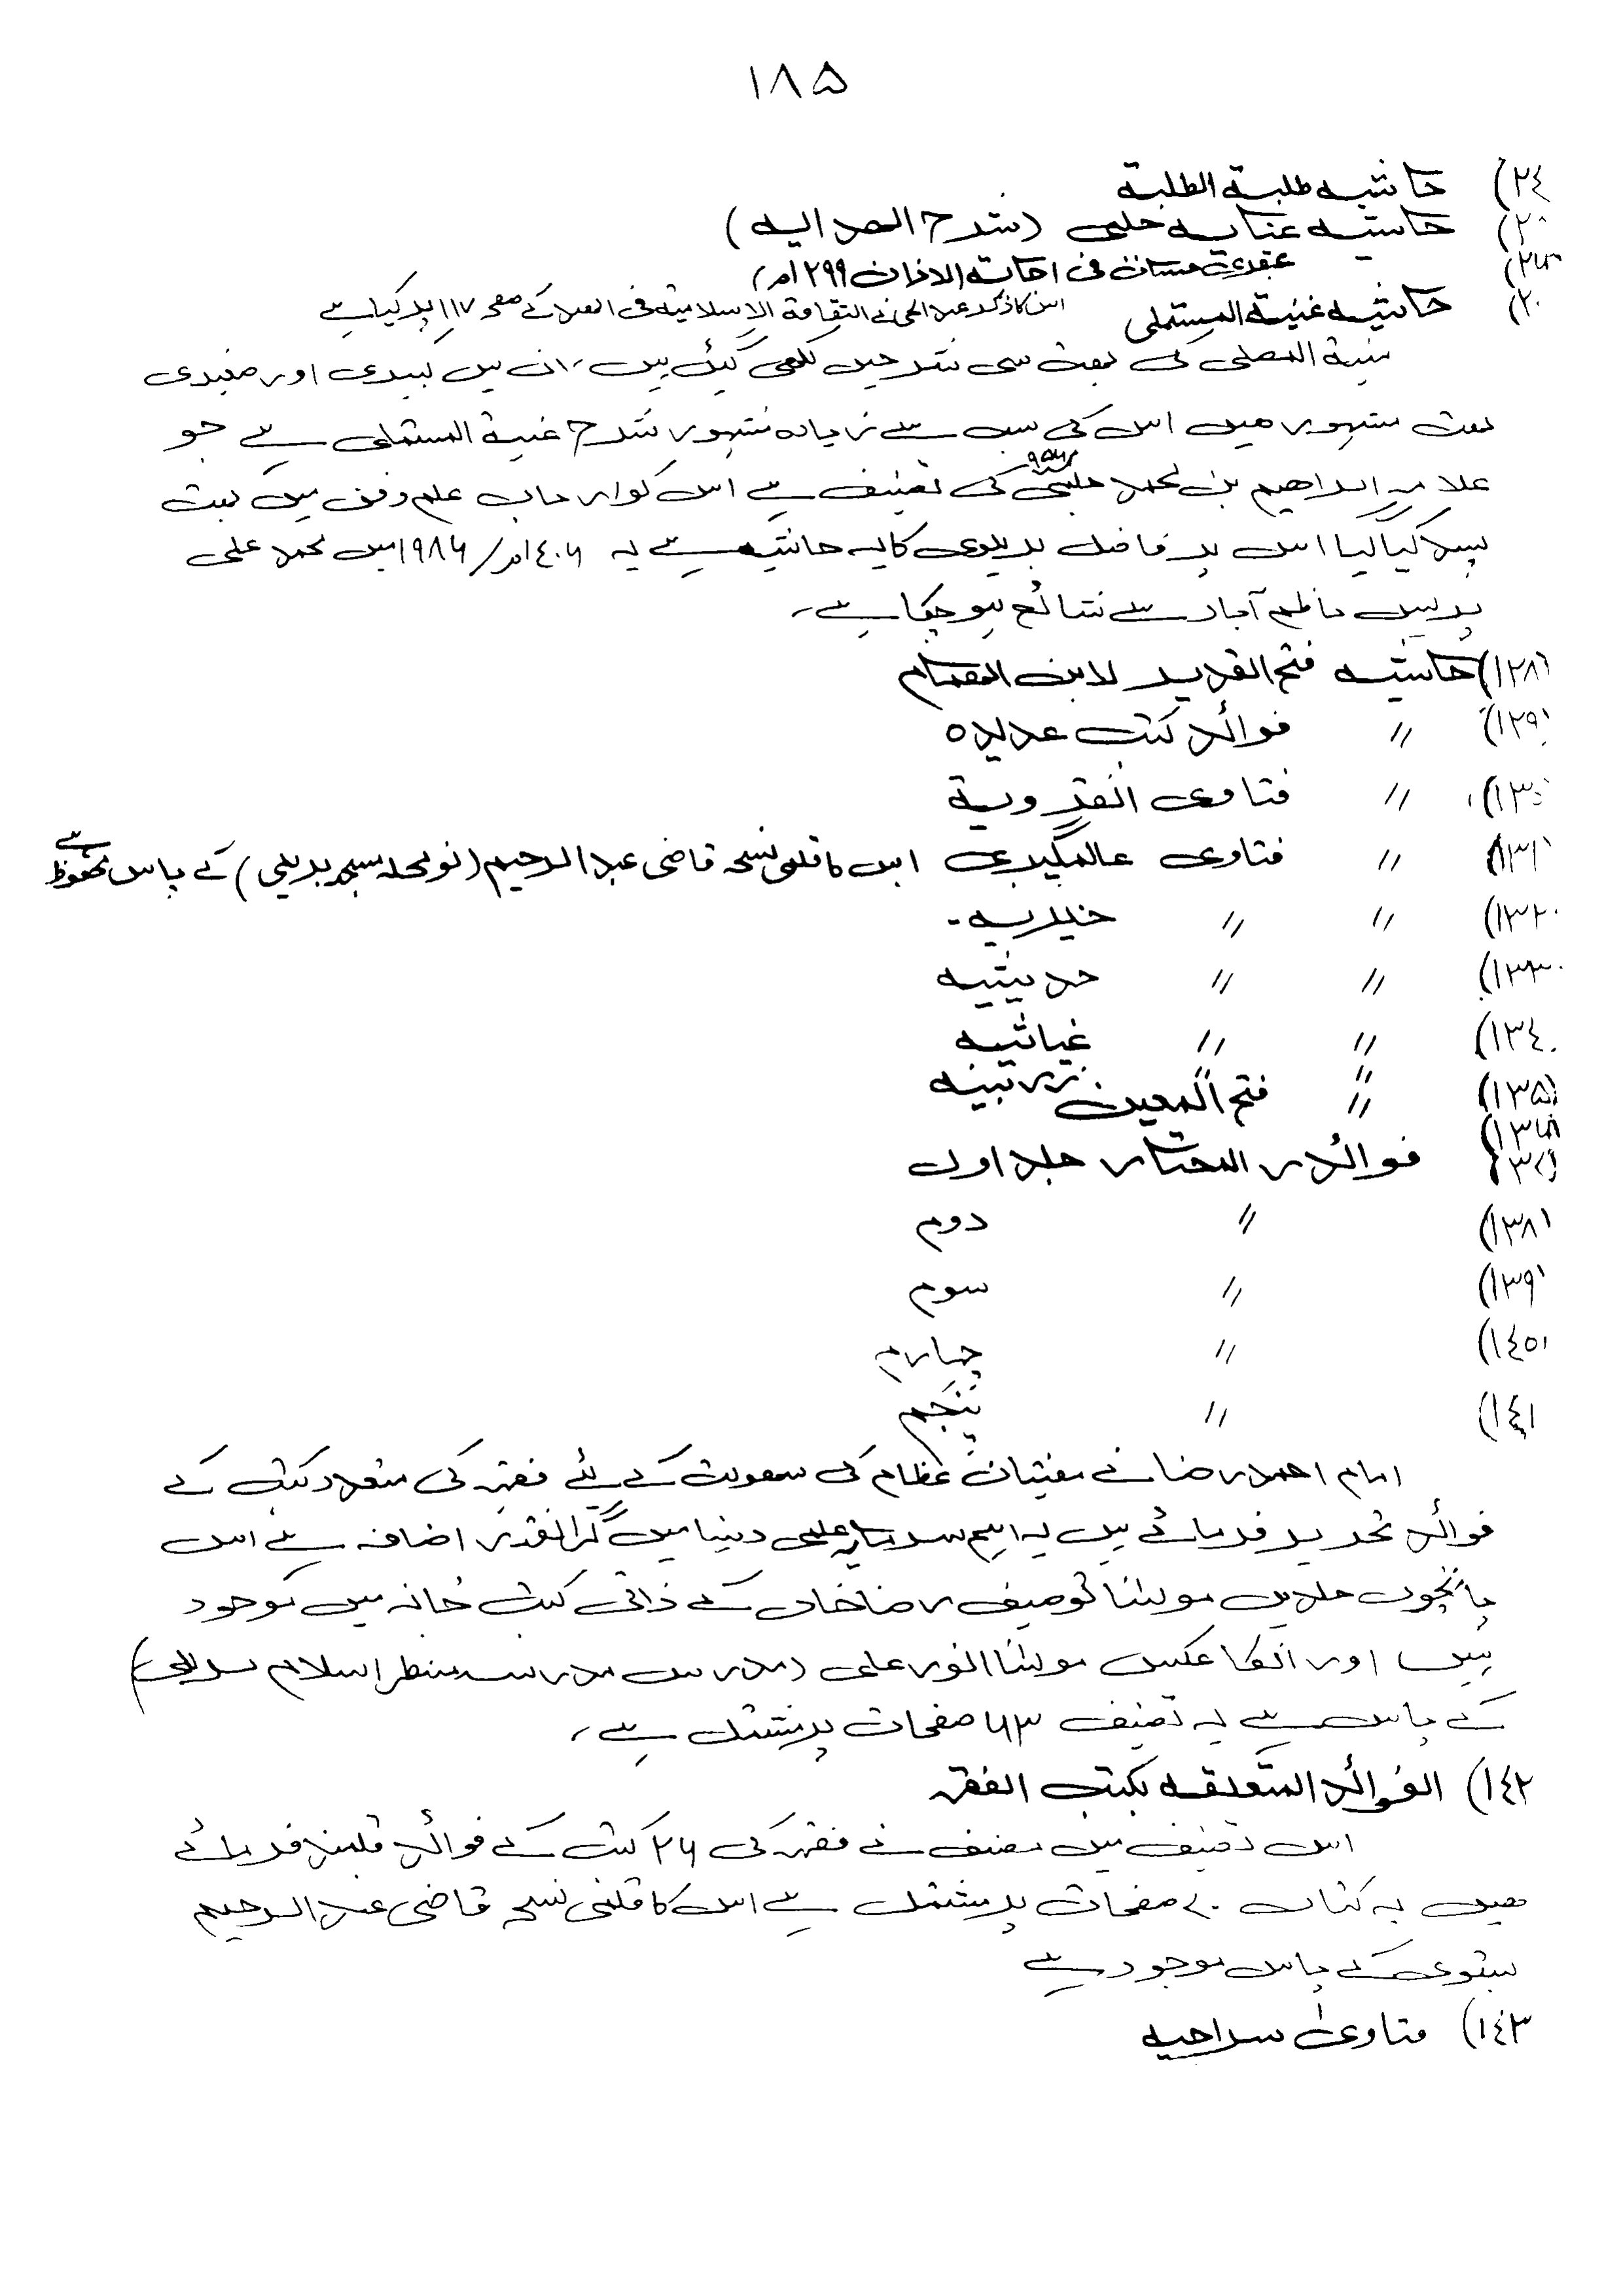 ۱۸۵
۲٤) حاشیہ طلبۃ الطلبۃ
حاشیہ عنایہ حلبی (شرح الھدایہ)
عبقری حسان فی اجابۃ الاذان ۱۲۹۹ھ
حاشیہ غنیۃ المستملی اس کا ذکر عبدالحی نے الثقافۃ الاسلامیۃ فی الھند کے صفحہ ۱۱۷ پر کیا ہے
منیۃ المصلی کی بہت سی شرحیں لکھی گئی ہیں، ان میں کبیری اور صغیری
بہت مشہور ھیں اس کی سب سے زیادہ مشہور شرح غنیۃ المستملی ہے جو
علامہ ابراھیم بن محمد حلبی ۹۵۶ کی تصنیف ہے اس کو ارباب علم وفن میں بہت
پسند کیا گیا اس پر فاضل بریلوی کا یہ حاشیہ ہے یہ ۱٤۰۶ھ/۱۹۸۶ میں محمد علی
پریس ناظم آباد سے شائع ہو چکا ہے۔
۱۲۸) حاشیہ فتح القدیر لابن الھمام
۱۲۹) 〃 فوائد کتب عدیدہ
۱۳۰) 〃 فتاوی انقرویۃ
۱۳۱) 〃 فتاوی عالمگیری اس کا قلمی نسخہ قاضی عبد الرحیم (نو محلہ مسجد بریلی) کے پاس محفوظ ہے
۱۳۲) 〃 〃 خیریہ -
۱۳۳) 〃 〃 حدیثیہ
۱۳٤) 〃 〃 غیاثیہ
۱۳۵) 〃 〃 زربینیہ
۱۳۶) 〃 فتح المعین
۱۳۷) فوائد رد المحتار جلد اول
۱۳۸) 〃 دوم
۱۳۹) 〃 سوم
۱٤۰) 〃 چہارم
۱٤۱) 〃 پنجم
امام احمد رضا نے مفتیان عظام کی سھولت کے لئے فقہ کی متعدد کتب کے
فوائد تحریر فرمائے ہیں یہ اہم سرمایہ علمی دنیا میں گرانقدر اضافہ ہے اس
پانچوں جلدیں مولانا توصیف رضا خاں کے ذاتی کتب خانہ میں موجود
ہیں اور انکا عکس مولانا انور علی (مدرس مدرسہ منظر اسلام بریلی)
کے پاس ہے یہ تصنیف ۶۳ صفحات پر مشتمل ہے،
۱٤۲) الفوائد المتعلقہ بکتب الفقہ
اس تصنیف میں مصنف نے فقہ کی ۲۶ کتب کے فوائد قلمبند فرمائے
ھیں یہ کتاب ۷۰ صفحات پر مشتمل ہے اس کا قلمی نسخہ قاضی عبد الرحیم
بستوی کے پاس موجود ہے
۱٤۳) فتاویٰ سراجیہ